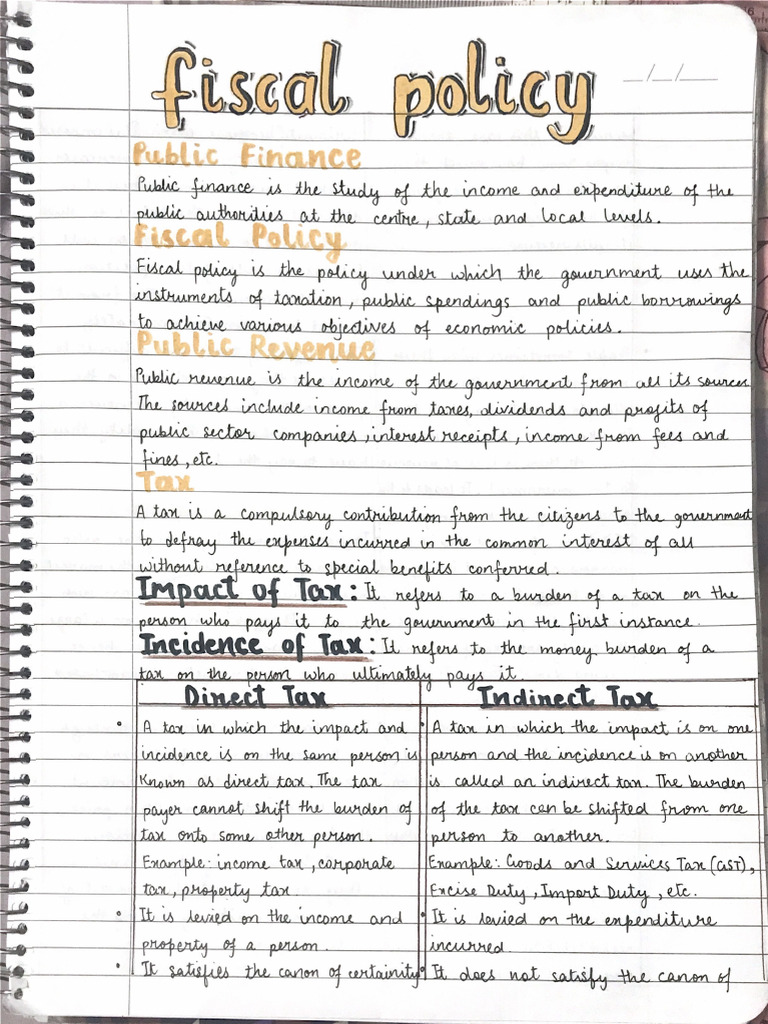 fiscal policy
_/_/_
Public Finance
Public finance is the study of the income and expenditure of the
public authorities at the centre, state and local levels.
Fiscal Policy
Fiscal policy is the policy under which the government uses the
instruments of taxation, public spendings and public borrowings
to achieve various objectives of economic policies.
Public Revenue
Public revenue is the income of the government from all its sources
The sources include income from taxes, dividends and profits of
public sector companies, interest receipts, income from fees and
fines, etc.
Tax
A tax is a compulsory contribution from the citizens to the government
to defray the expenses incurred in the common interest of all
without reference to special benefits conferred.
Impact of Tax: It refers to a burden of a tax on the
person who pays it to the government in the first instance.
Incidence of Tax: It refers to the money burden of a
tax on the person who ultimately pays it.
Direct Tax
• A tax in which the impact and
incidence is on the same person is
known as direct tax. The tax
payer cannot shift the burden of
tax onto some other person.
Example: income tax, corporate
tax, property tax.
• It is levied on the income and
property of a person.
• It satisfies the canon of certainity
Indirect Tax
• A tax in which the impact is on one
person and the incidence is on another
is called an indirect tax. The burden
of the tax can be shifted from one
person to another.
Example: Goods and Services Tax (GST),
Excise Duty, Import Duty, etc.
• It is levied on the expenditure
incurred.
• It does not satisfy the canon of